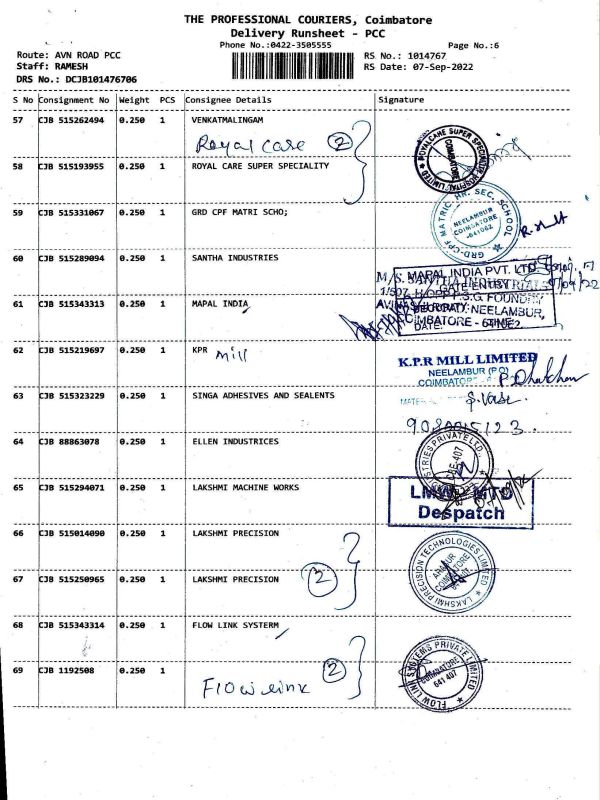 THE PROFESSIONAL COURIERS, Coimbatore
Delivery Runsheet - PCC
Phone No.:0422-3505555 Page No.:6
Route: AVN ROAD PCC RS No.: 1014767
Staff: RAMESH RS Date: 07-Sep-2022
DRS No.: DCJB101476706
S No Consignment No Weight PCS Consignee Details Signature
57 CJB 515262494 0.250 1 VENKATMALINGAM
Royal care 2
ROYALCARE SUPER SPECIALITY HOSPITAL LIMITED
COIMBATORE
58 CJB 515193955 0.250 1 ROYAL CARE SUPER SPECIALITY
59 CJB 515331067 0.250 1 GRD CPF MATRI SCHO;
GRD-CPF MATRIC HR. SEC. SCHOOL
NEELAMBUR
COIMBATORE
-641062
60 CJB 515289094 0.250 1 SANTHA INDUSTRIES
MAPAL INDIA PVT. LTD.
GATE ENTRY
M/S. SANTHA INDUSTRIES
S.G. FOUNDRY
61 CJB 515343313 0.250 1 MAPAL INDIA
SECURITY
NEELAMBUR,
COIMBATORE - 641062
DATE: TIME:
62 CJB 515219697 0.250 1 KPR
mill
K.P.R MILL LIMITED
NEELAMBUR (PO)
COIMBATORE
63 CJB 515323229 0.250 1 SINGA ADHESIVES AND SEALENTS
64 CJB 88863078 0.250 1 ELLEN INDUSTRICES
65 CJB 515294071 0.250 1 LAKSHMI MACHINE WORKS
LMW MTD
Despatch
66 CJB 515014090 0.250 1 LAKSHMI PRECISION
LAKSHMI PRECISION TECHNOLOGIES LIMITED
COIMBATORE
67 CJB 515250965 0.250 1 LAKSHMI PRECISION
2
68 CJB 515343314 0.250 1 FLOW LINK SYSTERM
FLOW LINK SYSTEMS PRIVATE LIMITED
COIMBATORE
641 407
69 CJB 1192508 0.250 1
Flow link 2